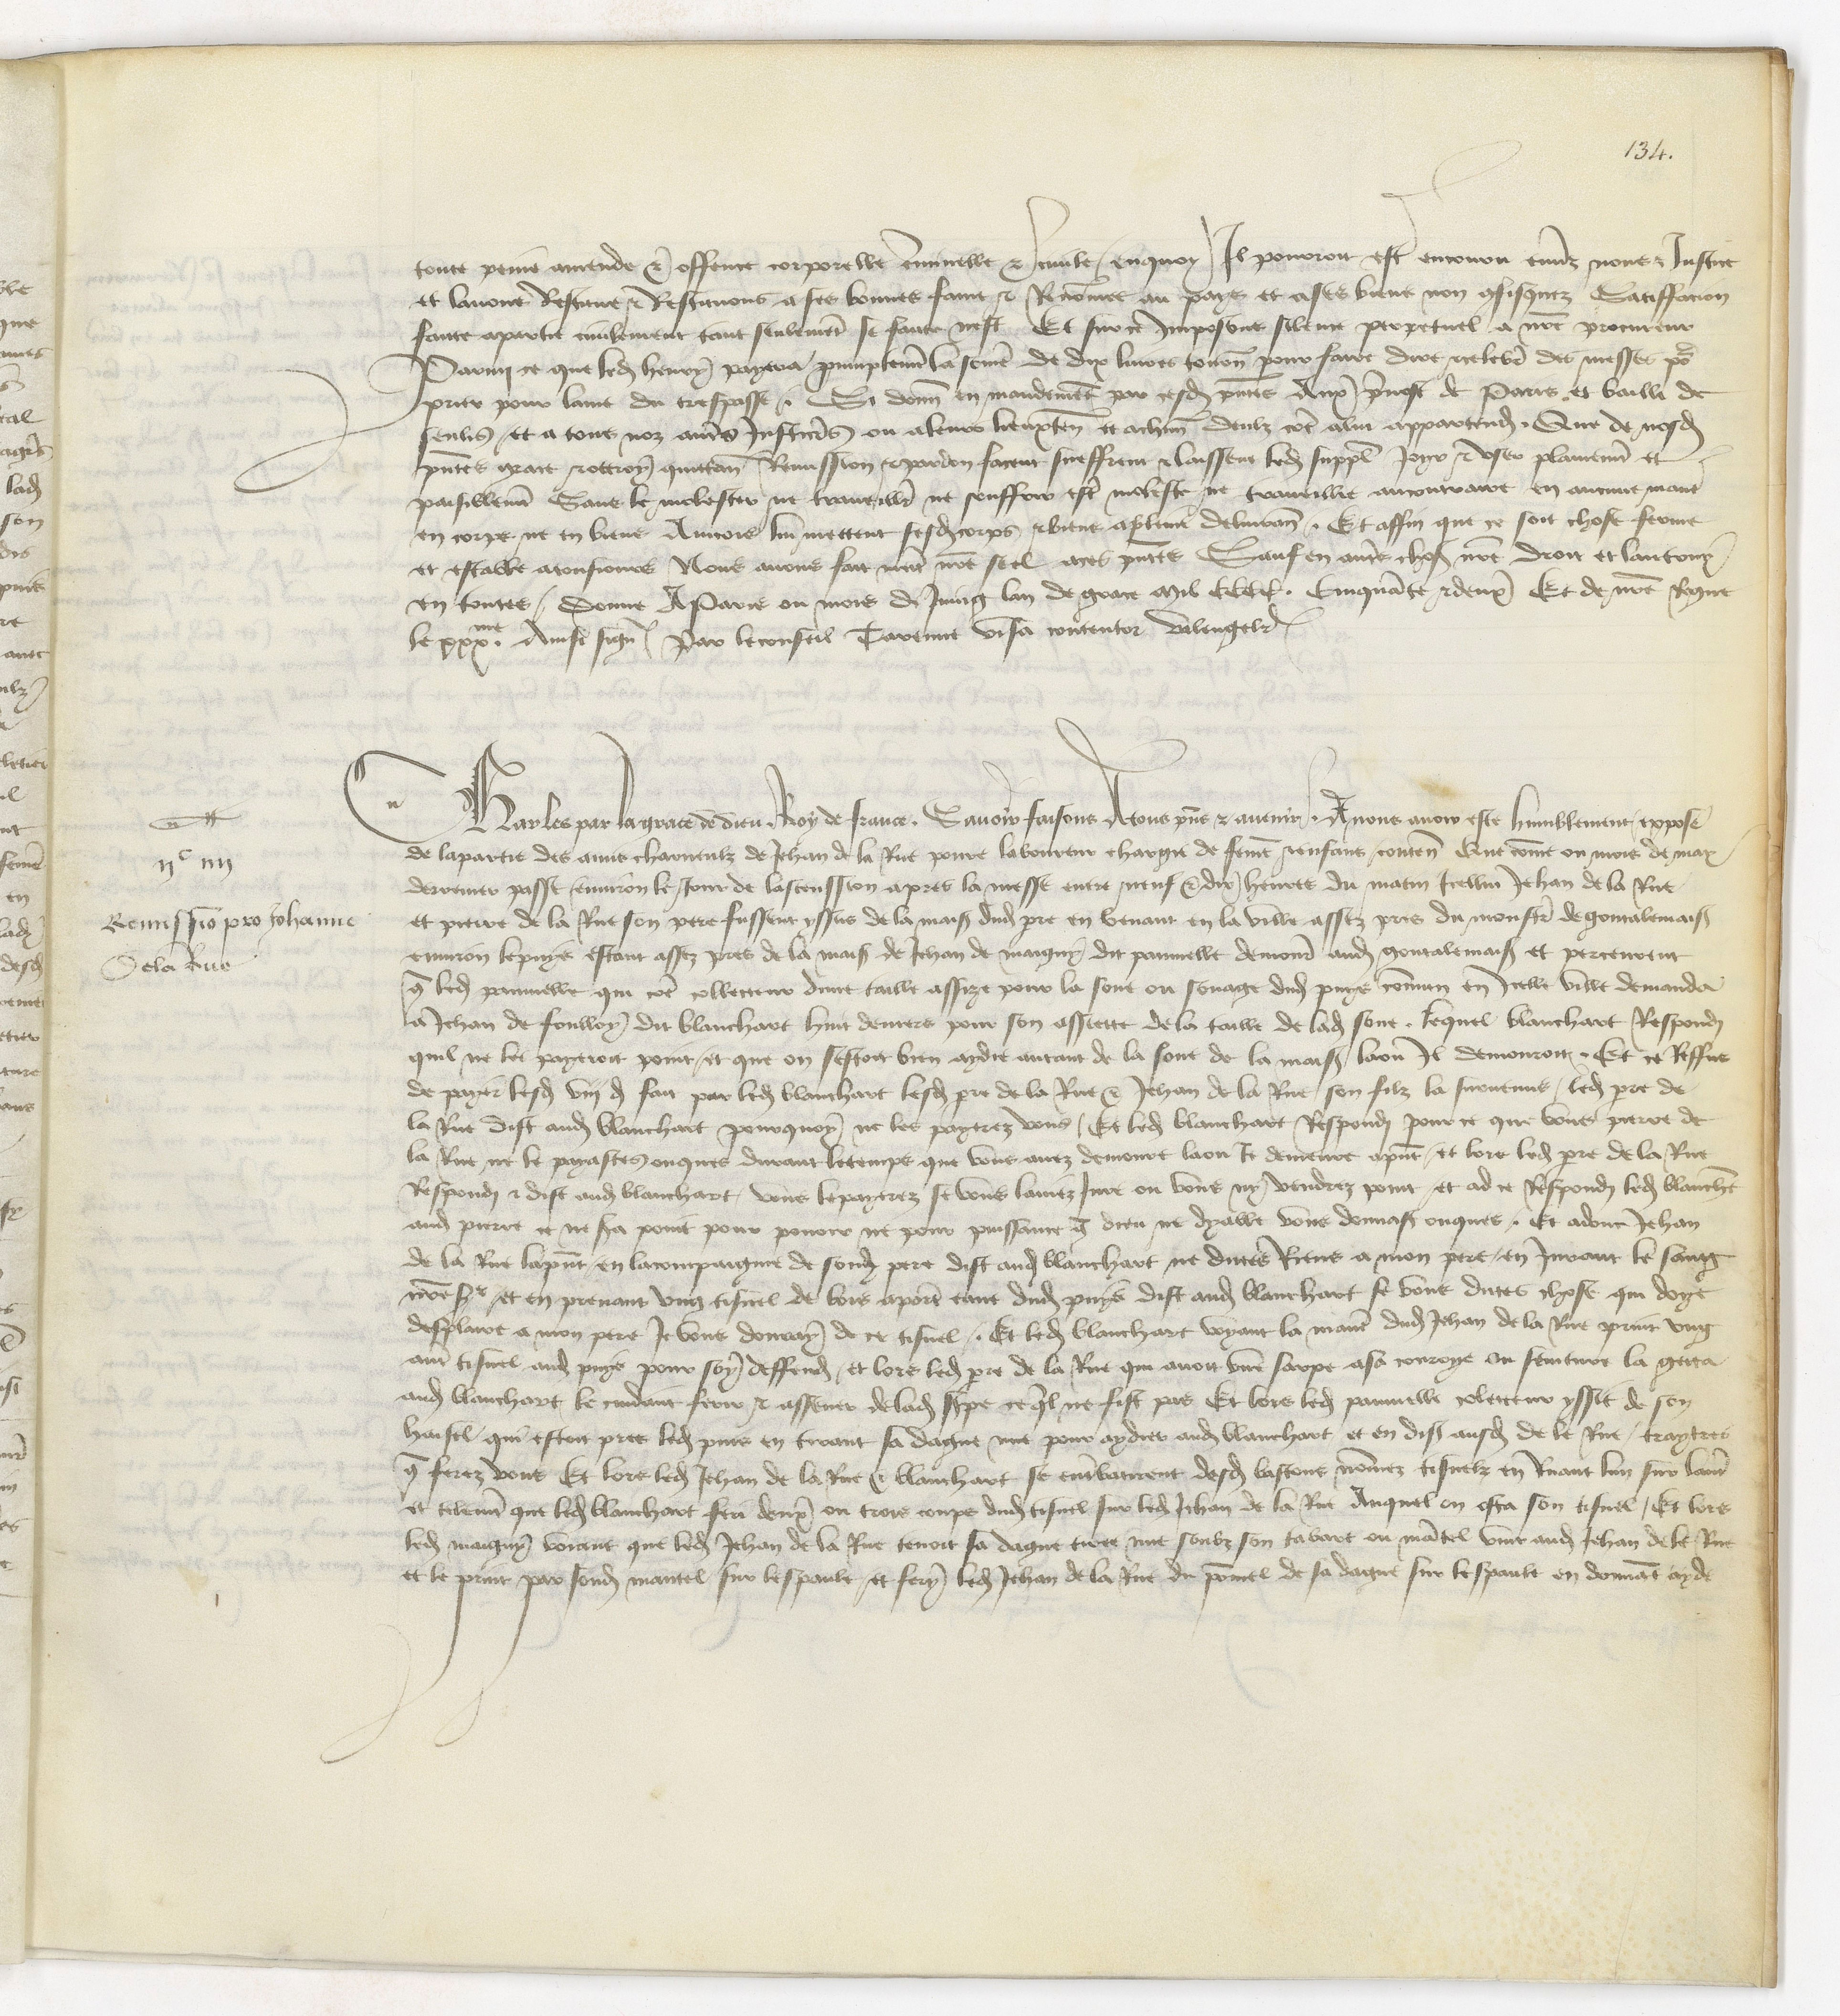 134.
toute peine amende & offence corporelle criminelle & civile enquoy Il pourroit estre encouru envers nous & Justice
et lavons Restitue & Restituons a ses bonnes fame & Renommee au pays et a ses biens non confisquez Satiffacion
faicte a partie civilement tant seulement se faicte nest Et sur ce Imposons silence perpetuel a nostre procureur
Parmy ce que led henry payera promptement la somme de dix livres tourn pour faire dire & celebrer des messes po
prier pour lame du trespasse. Si donn en mandement par cesd pntes Aux prevost de Paris et bailli de
senlis et a tous noz autres Justiciers ou a leurs lieuxten et a chun deulz come a lui appartend. Que de nosd
pntes grace & ottroy quittance Remission & pardon facent sueffrent & laissent led suppl Joyr & user plainement et
paisiblement Sans le molester ne travailler ne souffrir estre moleste ne travaillie au contraire en aucune maniere
en corps ne en biens Aincois lui mettent sesd corps & biens a plaine delivrance. Et affin que ce soit chose ferme
et estable a tousiours Nous avons fait mettre nostre seel a ces pntes Sauf en autres choses nostre droit et lautruy
en toutes. Donne A Paris ou mois de Juing lan de grace Mil CCCC. Cinquante & deux Et de nostre Regne
le xxx.me Ainsi signe Par le conseil Tarenne visa contentor Valengelier
Charles par la grace de dieu Roy de france. Savoir faisons Atous pns & avenir. A nous avoir este humblement expose
de lapartie des amis charnelz de Jehan de la Rue povre laboureur chargie de feme & enfans contenant Que come ou mois de may
derrenier passe environ le Jour de lascenssion apres la messe entre neuf & dix heures du matin Icellui Jehan de la Rue
et pierre de la Rue son pere fussent yssus de la mais dud pre en venant en la ville assez pres du monstier de
environ le puys estant assez pres de la mais de Jehan de maigny dit pannelle demour aud et percevrent
q led pannelle qui estoit collecteur dune taille assize pour la soue ou souage dud puys commun en Icelle ville demanda
a Jehan de foulloy dit blanchart huit deniers pour son assiette de la taille de lad soue. lequel blanchart Respondi
quil ne les payeroit point et que on sestoit bien aydie autant de la soue de la mais laou Il demouroit. Et ce Reffus
de payer lesd viij d fait par led blanchart lesd pre de la Rue & Jehan de la Rue son filz la survenus led pre de
la Rue dist aud blanchart pourquoy ne les payerez vous Et led blanchart Respondi pour ce que vous pierre de
la Rue ne le payastes onques durant letemps que vous avez demoure laou Je demeure apnt et lors led pre de la Rue
Respondi & dist aud blanchart vous lepayerez se vous laviez Jure ou vous ny vendrez point et ad ce Respondi led blanchart
aud pierre ce ne sera point pour povoir ne pour puissance q dieu ne dyable vous donnast onques. Et adonc Jehan
de la Rue lapnt en lacompaignie de sond pere dist aud blanchart ne dictes Riens a mon pere en Jurant le sang
nostre sr et en prenant ung tisnel de bois a porter eaue dud puys dist aud blanchart se vous dictes chose qui doye
desplaire a mon pere Je vous donray de ce tisnel. Et led blanchart voyant la maniere dud Jehan de la Rue print ung
autre tisnel aud puys pour soy deffendre et lors led pre de la Rue qui avoit une sarpe asa courroye ou seinture la getta
aud blanchart le cuidant ferir & assener de lad sarpe ce quil ne fist pas Et lors led pannelle collecteur yssit de son
hostel qui estoit pres led puis en tirant sa dague nue pour aydier aud blanchart et en dist ausd de le Rue traytres
q ferez vous Et lors led Jehan de la Rue & blanchart se entrebatirent desd bastons nommez tisnelz en Ruant lun sur lautre
et telement que led blanchart feri deux ou trois coups dud tisnel sur led Jehan de la Rue Auquel on osta son tisnel Et lors
led maigny voiant que led Jehan de la Rue tenoit sa dague tiree nue soubz son tabart ou mantel vint aud Jehan de le Rue
et le print par sond mantel sur lespaule et fery led Jehan de la Rue du pommel de sa dague sur lespaule en donnant ayde
ijc iiij
Remissio pro Johanne
De la Rue